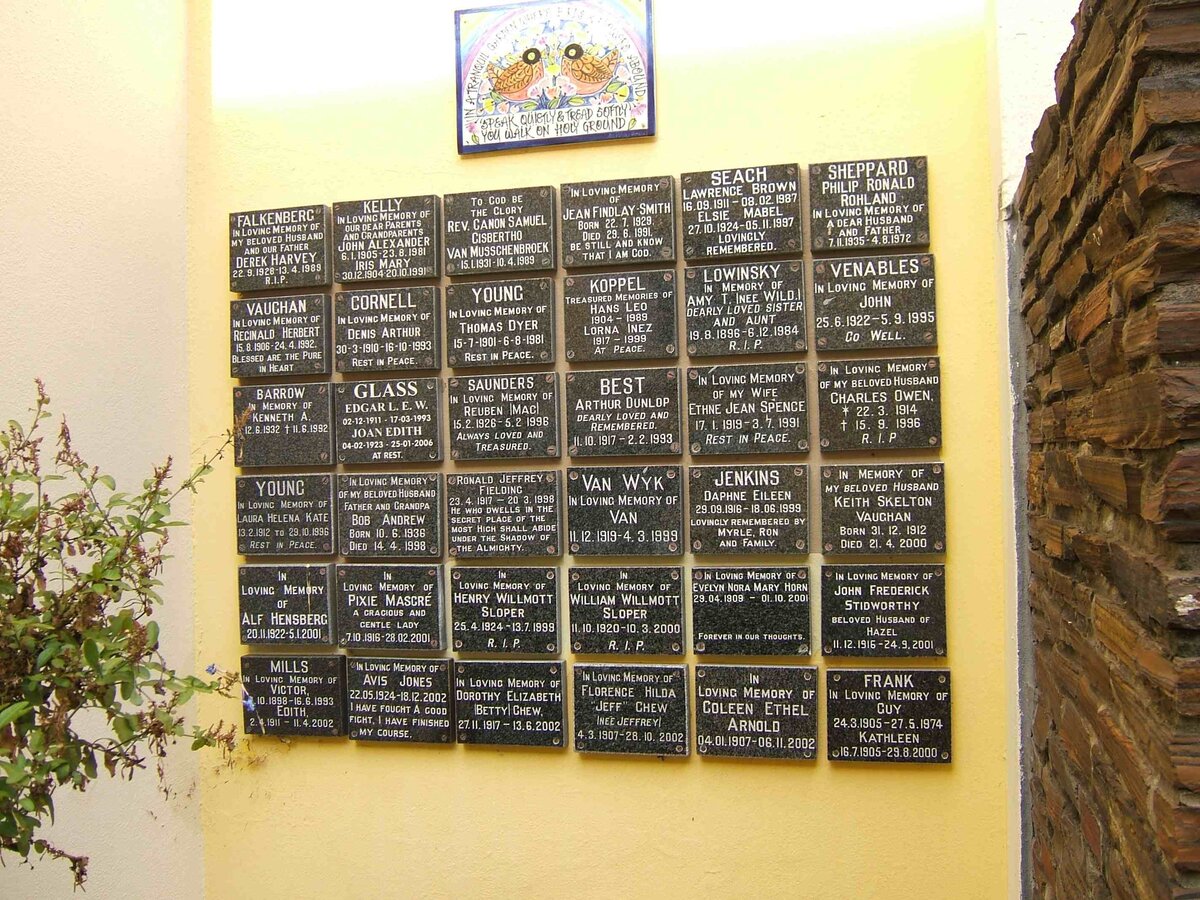 IN A TRANQUIL GARDEN WHERE
ABOUND
SPEAK QUIETLY & TREAD SOFTLY
YOU WALK ON HOLY GROUND
FALKENBERG
IN LOVING MEMORY OF
MY BELOVED HUSBAND
AND OUR FATHER
DEREK HARVEY
22.9.1928-13.4.1989
R.I.P.
KELLY
IN LOVING MEMORY OF
OUR DEAR PARENTS
AND GRANDPARENTS
JOHN ALEXANDER
6.1.1905-23.8.1981
IRIS MARY
30.12.1904-20.10.1991
TO GOD BE
THE GLORY
REV. CANON SAMUEL
GISBERTHO
VAN MUSSCHENBROEK
15.1.1931-10.4.1989
IN LOVING MEMORY
OF
JEAN FINDLAY-SMITH
BORN 22.7.1929.
DIED 29.6.1991.
BE STILL AND KNOW
THAT I AM GOD.
SEACH
LAWRENCE BROWN
16.09.1911-08.02.1987
ELSIE MABEL
27.10.1924-05.11.1997
LOVINGLY
REMEMBERED.
SHEPPARD
PHILIP RONALD
ROHLAND
IN LOVING MEMORY OF
A DEAR HUSBAND
AND FATHER
7.11.1935-4.8.1972
VAUGHAN
IN LOVING MEMORY OF
REGINALD HERBERT
15.8.1906-24.4.1992.
BLESSED ARE THE PURE
IN HEART
CORNELL
IN LOVING MEMORY OF
DENIS ARTHUR
30-3-1910-16-10-1993
REST IN PEACE.
YOUNG
IN LOVING MEMORY OF
THOMAS DYER
15-7-1901-6-8-1981
REST IN PEACE.
KOPPEL
TREASURED MEMORIES OF
HANS LEO
1904 - 1989
LORNA INEZ
1917 - 1999
AT PEACE.
LOWINSKY
IN MEMORY OF
AMY T. (NEE WILD.)
DEARLY LOVED SISTER
AND AUNT
19.8.1896-6.12.1984
R.I.P.
VENABLES
IN LOVING MEMORY OF
JOHN
25.6.1922-5.9.1995
GO WELL.
BARROW
IN MEMORY OF
KENNETH A.
12.6.1932 † 11.6.1992
GLASS
EDGAR L. E. W.
02-12-1911 - 17-03-1993
JOAN EDITH
04-02-1923 - 25-01-2006
AT REST.
SAUNDERS
IN LOVING MEMORY OF
REUBEN (MAC)
15.2.1926-5.2.1996
ALWAYS LOVED AND
TREASURED.
BEST
ARTHUR DUNLOP
DEARLY LOVED AND
REMEMBERED.
11.10.1917-2.2.1993
IN LOVING MEMORY
OF MY WIFE
ETHNE JEAN SPENCE
17.1.1919-3.7.1991
REST IN PEACE.
IN LOVING MEMORY
OF MY BELOVED HUSBAND
CHARLES OWEN.
* 22.3.1914
† 15.9.1996
R.I.P
YOUNG
IN LOVING MEMORY OF
LAURA HELENA KATE
13.2.1912 TO 29.10.1996
REST IN PEACE.
IN LOVING MEMORY OF
MY BELOVED HUSBAND
FATHER AND GRANDPA
BOB ANDREW
BORN 10.6.1936
DIED 14.4.1998
RONALD JEFFREY
FIELDING
23.4.1917 - 20.3.1998
HE WHO DWELLS IN THE
SECRET PLACE OF THE
MOST HIGH SHALL ABIDE
UNDER THE SHADOW OF
THE ALMIGHTY.
VAN WYK
IN LOVING MEMORY OF
VAN
11.12.1919-4.3.1999
JENKINS
DAPHNE EILEEN
29.09.1916-18.06.1999
LOVINGLY REMEMBERED BY
MYRLE, RON
AND FAMILY.
IN MEMORY OF
MY BELOVED HUSBAND
KEITH SKELTON
VAUGHAN
BORN 31.12.1912
DIED 21.4.2000
IN
LOVING MEMORY
OF
ALF HENSBERG
20.11.1922-5.1.2001
IN LOVING MEMORY OF
PIXIE MASCRÉ
A GRACIOUS AND
GENTLE LADY
7.10.1916-28.02.2001
IN
LOVING MEMORY OF
HENRY WILLMOTT
SLOPER
25.4.1924-13.7.1999
R.I.P.
IN
LOVING MEMORY OF
WILLIAM WILLMOTT
SLOPER
11.10.1920-10.3.2000
R.I.P.
IN LOVING MEMORY OF
EVELYN NORA MARY HORN
29.04.1909 - 01.10.2001
FOREVER IN OUR THOUGHTS.
IN LOVING MEMORY OF
JOHN FREDERICK
STIDWORTHY
BELOVED HUSBAND OF
HAZEL
11.12.1916-24.9.2001
MILLS
IN LOVING MEMORY OF
VICTOR,
.10.1898-16.6.1993
EDITH,
2.4.1911 - 11.4.2002
IN LOVING MEMORY OF
AVIS JONES
22.05.1924-18.12.2002
I HAVE FOUGHT A GOOD
FIGHT, I HAVE FINISHED
MY COURSE.
IN LOVING MEMORY OF
DOROTHY ELIZABETH
(BETTY) CHEW,
27.11.1917 - 13.6.2002
IN LOVING MEMORY OF
FLORENCE HILDA
"JEFF" CHEW
(NEE JEFFREY)
4.3.1907-28.10.2002
IN
LOVING MEMORY OF
COLEEN ETHEL
ARNOLD
04.01.1907-06.11.2002
FRANK
IN LOVING MEMORY OF
GUY
24.3.1905-27.5.1974
KATHLEEN
16.7.1905-29.8.2000